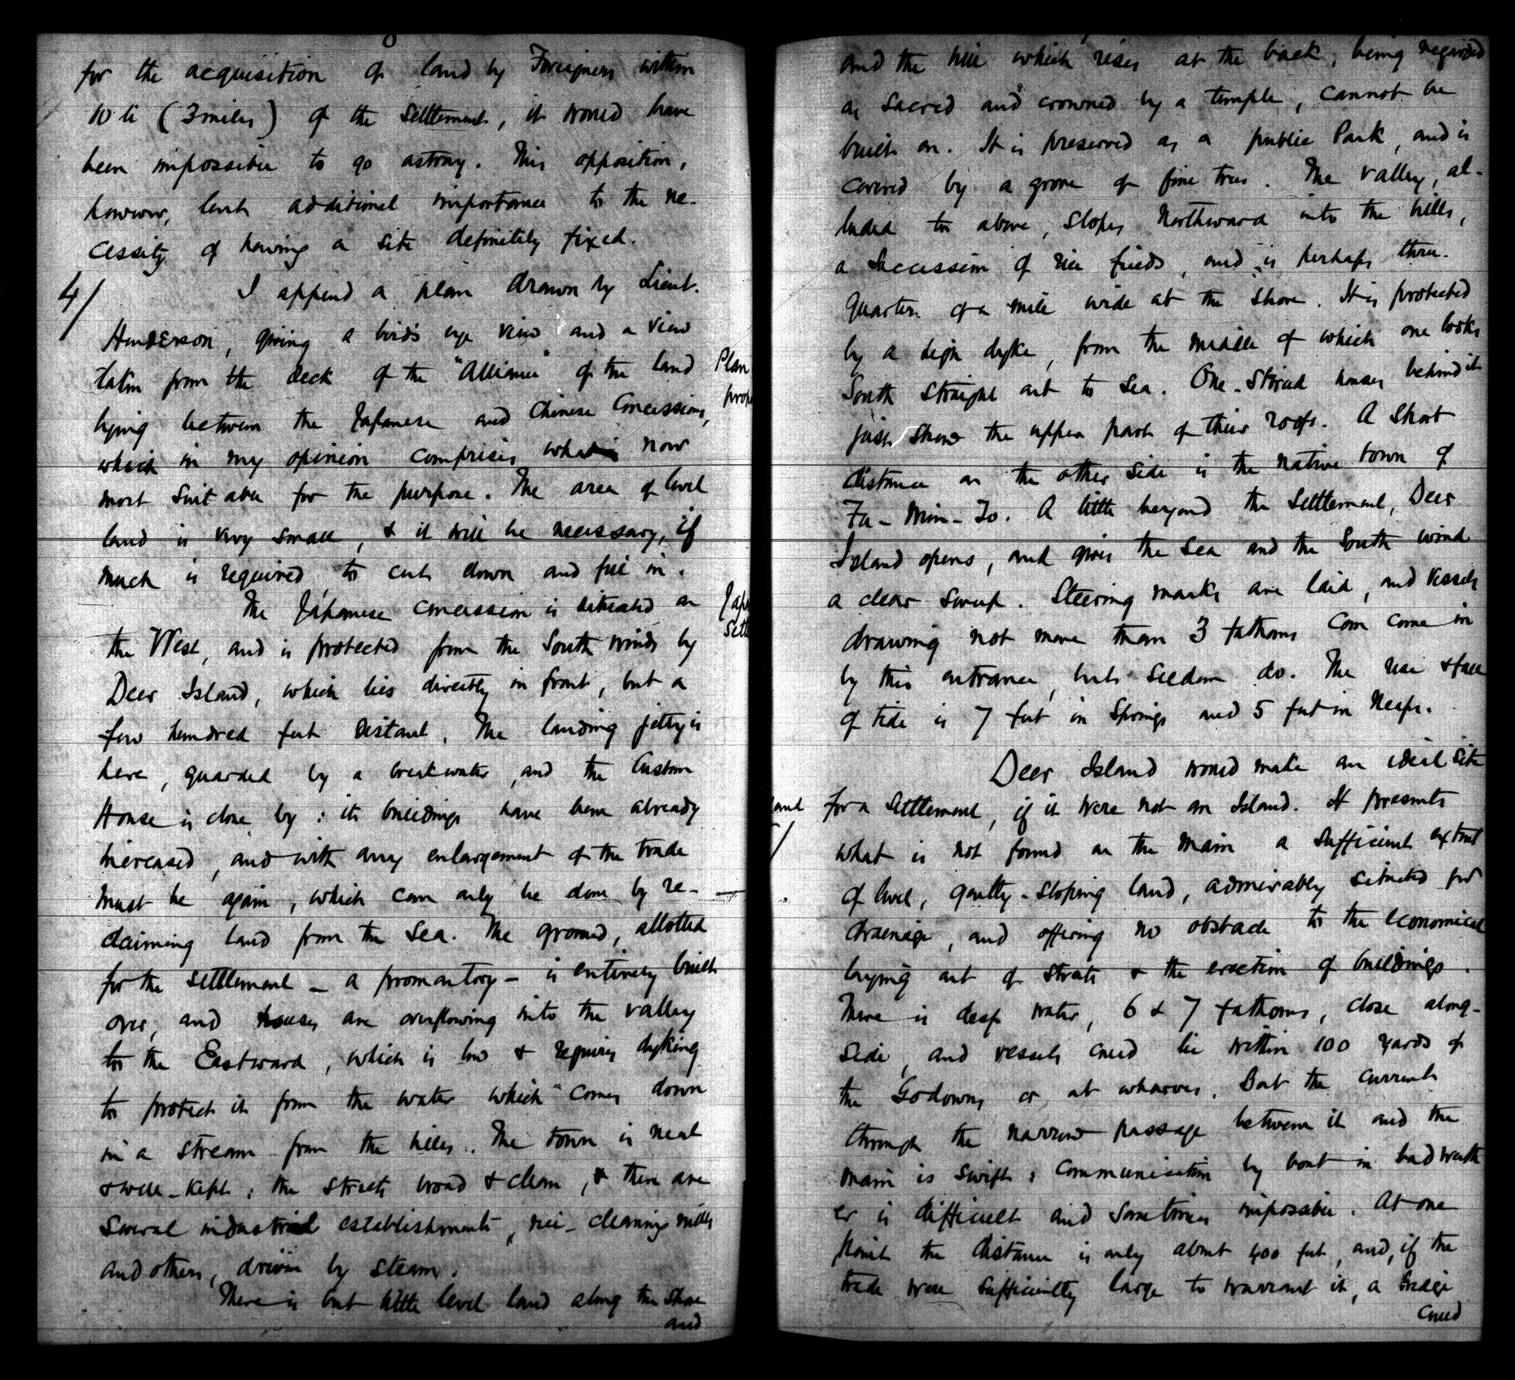 for the acquisition of land by Foreigners within
10 li (3 miles) of the Settlement, it would have
been impossible to go astray. This opposition,
however, lent additional importance to the ne-
cessity of having a site definitely fixed.
4/
I append a plan drawn by Lieut.
Henderson, giving a bird's eye view and a view
taken from the deck of the "Alliance" of the land
lying between the Japanese and Chinese Concessions,
which in my opinion comprises what is now
most suitable for the purpose. The area of level
land is very small, & it will be necessary, if
much is required to cut down and fill in.
The Japanese concession is situated on
the West, and is protected from the South winds by
Deer Island, which lies directly in front, but a
few hundred feet distant. The landing jetty is
here, guarded by a breakwater, and the Custom
House is close by: its buildings have been already
increased, and with any enlargement of the trade
must be again, which can only be done by re-
claiming land from the Sea. The ground, allotted
for the settlement – a promontory – is entirely built
over, and houses are overflowing into the valley
to the Eastward, which is low & requires dyking
to protect it from the water which comes down
in a stream from the hills. The town is neat
& well-kept; the streets broad & clean, & there are
several industrial establishments, rice-cleaning mills
and others, driven by steam.
There is but little level land along the shore
and
Plan
and the hill which rises at the back, being regarded
as sacred and crowned by a temple, cannot be
built on. It is preserved as a public Park, and is
covered by a grove of fine trees. The valley, al-
luded to above, slopes Northward into the hills,
a succession of rice fields, and is perhaps three-
quarters of a mile wide at the shore. It is protected
by a high dyke, from the middle of which one looks
South straight out to Sea. One-storied houses behind it
just show the upper part of their roofs. A short
distance on the other side is the native town of
Fu-Min-To. A little beyond the Settlement, Deer
Island opens, and gives the Sea and the South wind
a clear sweep. Steering marks are laid, and vessels
drawing not more than 3 fathoms can come in
by this entrance, but seldom do. The rise & fall
of tide is 7 feet in Springs and 5 feet in Neaps.
Deer Island would make an ideal site
for a Settlement, if it were not an Island. It presents
what is not found on the main a sufficient extent
of level, gently-sloping land, admirably situated for
drainage, and offering no obstacle to the economical
laying out of streets & the erection of buildings.
There is deep water, 6 & 7 fathoms, close along-
side, and vessels could lie within 100 yards of
the Godowns or at wharves. But the current
through the narrow passage between it and the
main is swift: communication by boat in bad weath
er is difficult and sometimes impossible. At one
point the distance is only about 400 feet, and, if the
trade were sufficiently large to warrant it, a bridge
could